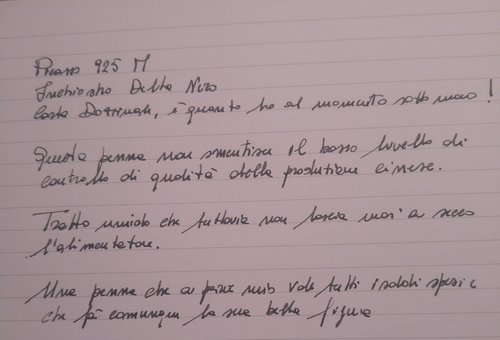 Picasso 925 M
Inchiostro Delta Nero
Carta Dozzinale, è quanto ho al momento sotto mano !
Questa penna non smentisce il basso livello di
controllo di qualità della produzione cinese.
Tratto umido che tuttavia non lascia mai a secco
l'alimentatore.
Una penna che a parer mio vale tutti i soldi spesi e
che fà comunque la sua bella figura